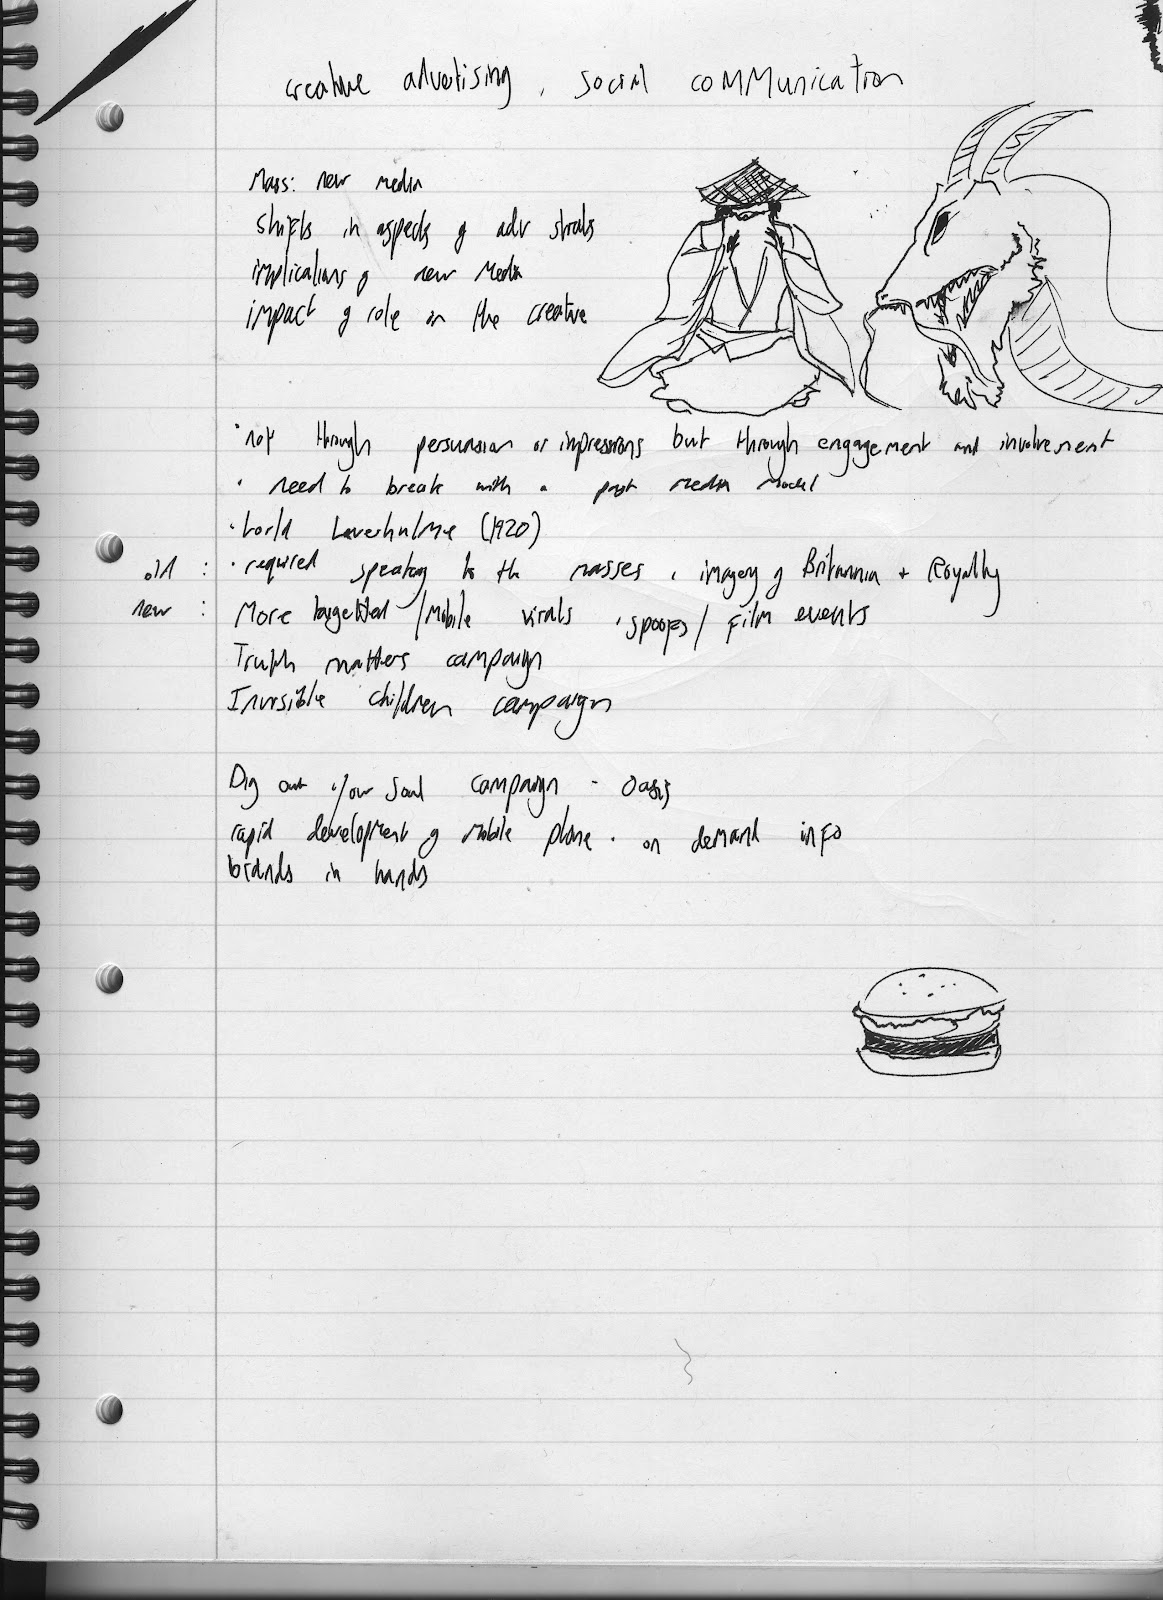 creative advertising, social communication
Mass: new media
shifts in aspects of adv strats
implications of new media
impact of role on the creative
• not through persuasion or impressions but through engagement and involvement
• need to break with a past media model
• Lord Leverhulme (1920)
old : • required speaking to the masses, imagery of Britannia + Royalty
new : More targetted / Mobile virals • spoofs / Film events
Truth matters campaign
Invisible children campaign
Dig out your soul campaign - Oasis
rapid development of mobile phone. on demand info
brands in hands